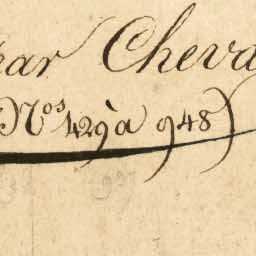 par Cheva
(Nos 429 à 948)